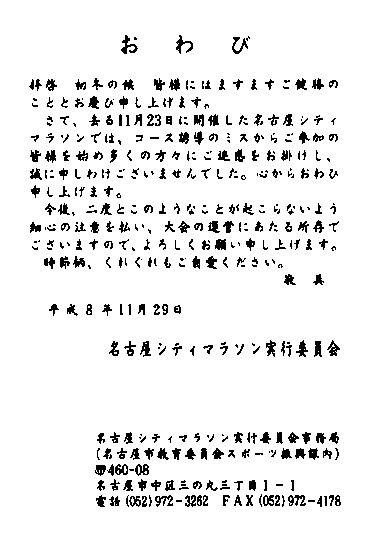 おわび
拝啓　初冬の候　皆様にはますますご健勝の
こととお慶び申し上げます。
　さて、去る11月23日に開催した名古屋シティ
マラソンでは、コース誘導のミスからご参加の
皆様を始め多くの方々にご迷惑をお掛けし、
誠に申しわけございませんでした。心からおわび
申し上げます。
　今後、二度とこのようなことが起こらないよう
細心の注意を払い、大会の運営にあたる所存で
ございますので、よろしくお願い申し上げます。
　時節柄、くれぐれもご自愛ください。
敬　具
平成８年11月29日
名古屋シティマラソン実行委員会
名古屋シティマラソン実行委員会事務局
(名古屋市教育委員会スポーツ振興課内)
〒460-08
名古屋市中区三の丸三丁目１－１
電話(052)972-3262　FAX(052)972-4178